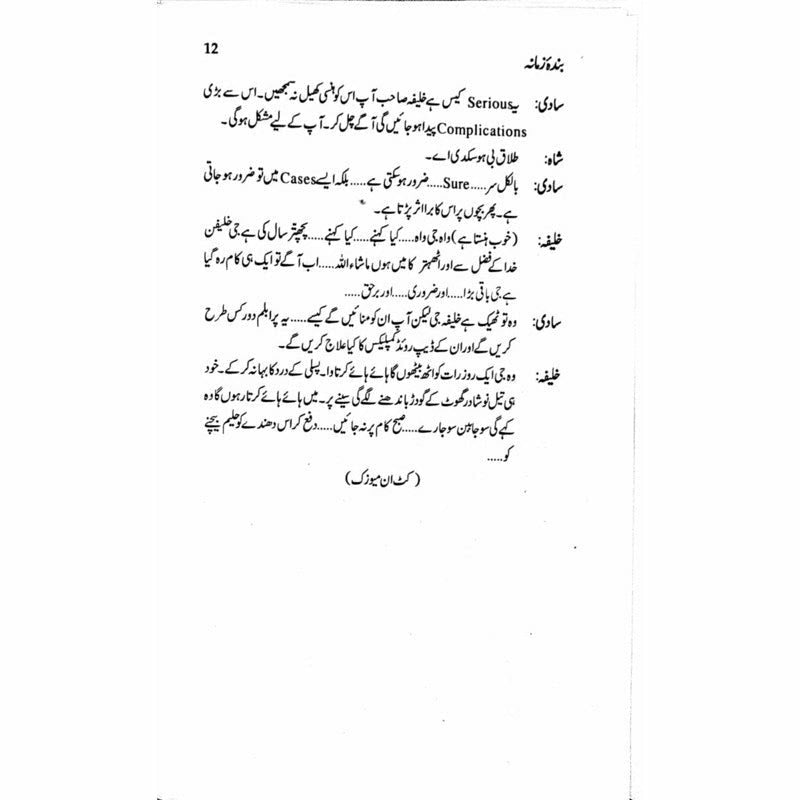 بندۂ زمانہ 12
ساوی: یہ Serious کیس ہے خلیفہ صاحب آپ اس کو ہنسی کھیل نہ سمجھیں۔ اس سے بڑی
Complications پیدا ہو جائیں گی آگے چل کر۔ آپ کے لیے مشکل ہوگی۔
شاہ: طلاق بی ہو سکدی اے۔
ساوی: بالکل سر.....Sure.....ضرور ہو سکتی ہے.....بلکہ ایسے Cases میں تو ضرور ہو جاتی
ہے۔ پھر بچوں پر اس کا برا اثر پڑتا ہے۔
خلیفہ: (خوب ہنستا ہے) واہ جی واہ.....کیا کہنے.....کیا کہنے.....پچھتر سال کی ہے جی خلیفن
خدا کے فضل سے اور اٹھہتر کا میں ہوں ماشاء اللہ.....اب آگے تو ایک ہی کام رہ گیا
ہے جی باقی بڑا.....اور ضروری.....اور برحق.....
ساوی: وہ تو ٹھیک ہے خلیفہ جی لیکن آپ ان کو منائیں گے کیسے.....یہ پرابلم دور کس طرح
کریں گے اور ان کے ڈیپ روئڈ کمپلیکس کا کیا علاج کریں گے۔
خلیفہ: وہ جی ایک روز رات کو اٹھ بیٹھوں گا ہائے ہائے کرتا وا۔ پسلی کے درد کا بہانہ کر کے۔ خود
ہی تیل نوشادر گھوٹ کے گودڑ باندھنے لگے گی سینے پر۔ میں ہائے ہائے کرتا رہوں گا وہ
کہے گی سو جا چن سو جارے.....صبح کام پر نہ جائیں.....دفع کر اس دھندے کو حلیم بیچنے
کو.....
(کٹ ان میوزک)